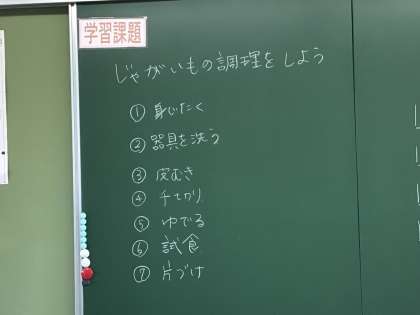 学習課題
じゃがいもの調理をしよう
① 身じたく
② 器具を洗う
③ 皮むき
④ 千切り
⑤ ゆでる
⑥ 試食
⑦ 片づけ